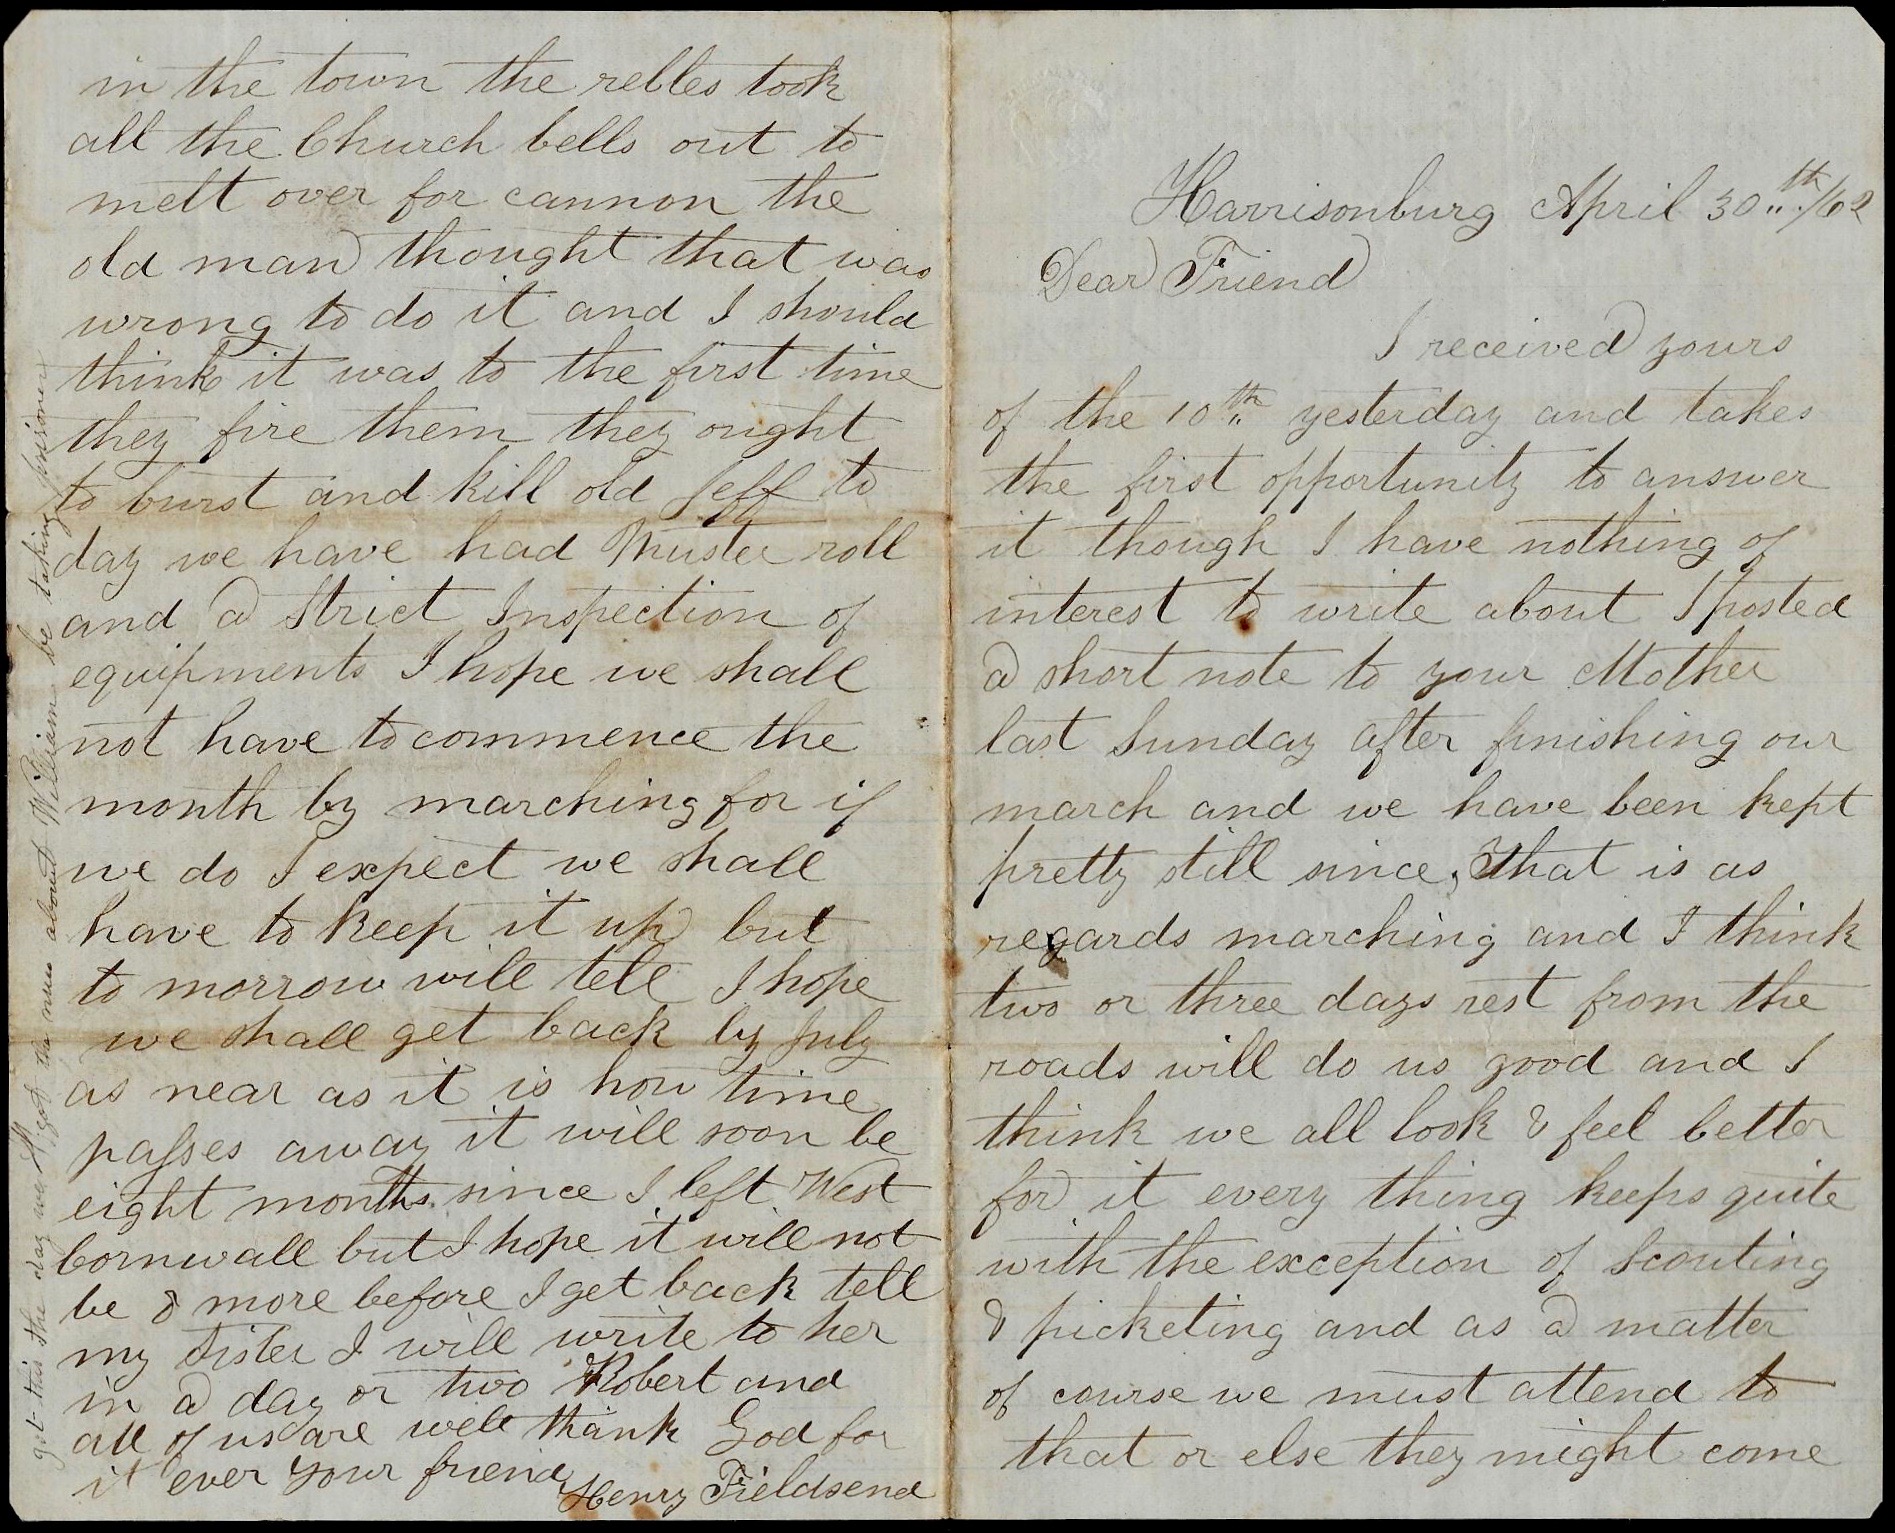 Harrisonburg April 30th/62
Dear Friend
I received yours
of the 10th yesterday and takes
the first opportunity to answer
it though I have nothing of
interest to write about I posted
a short note to your Mother
last Sunday after finishing our
march and we have been kept
pretty still since, that is as
regards marching and I think
two or three days rest from the
roads will do us good and I
think we all look & feel better
for it every thing keeps quite
with the exception of Scouting
& picketing and as a matter
of course we must attend to
that or else they might come
in the town the rebles took
all the Church bells out to
melt over for cannon the
old man thought that was
wrong to do it and I should
think it was to the first time
they fire them they ought
to burst and kill old Jeff to
day we have had Muster roll
and a Strict Inspection of
equipments I hope we shall
not have to commence the
month by marching for if
we do I expect we shall
have to keep it up but
to morrow will tell I hope
we shall get back by July
as near as it is how time
passes away it will soon be
eight months since I left West
Cornwall but I hope it will not
be 8 more before I get back tell
my Sister I will write to her
in a day or two Robert and
all of us are well thank God for
it ever your friend
Henry Fieldsend
get this the day we got the news about William be taking prisoner